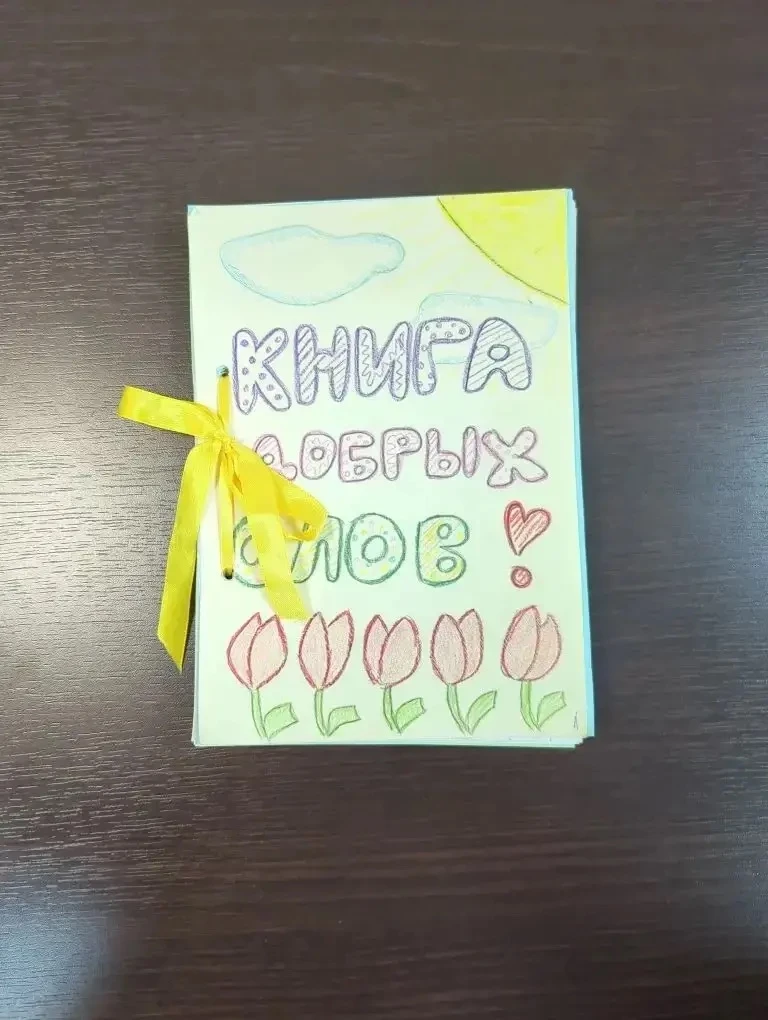 КНИГА
ДОБРЫХ
СЛОВ!